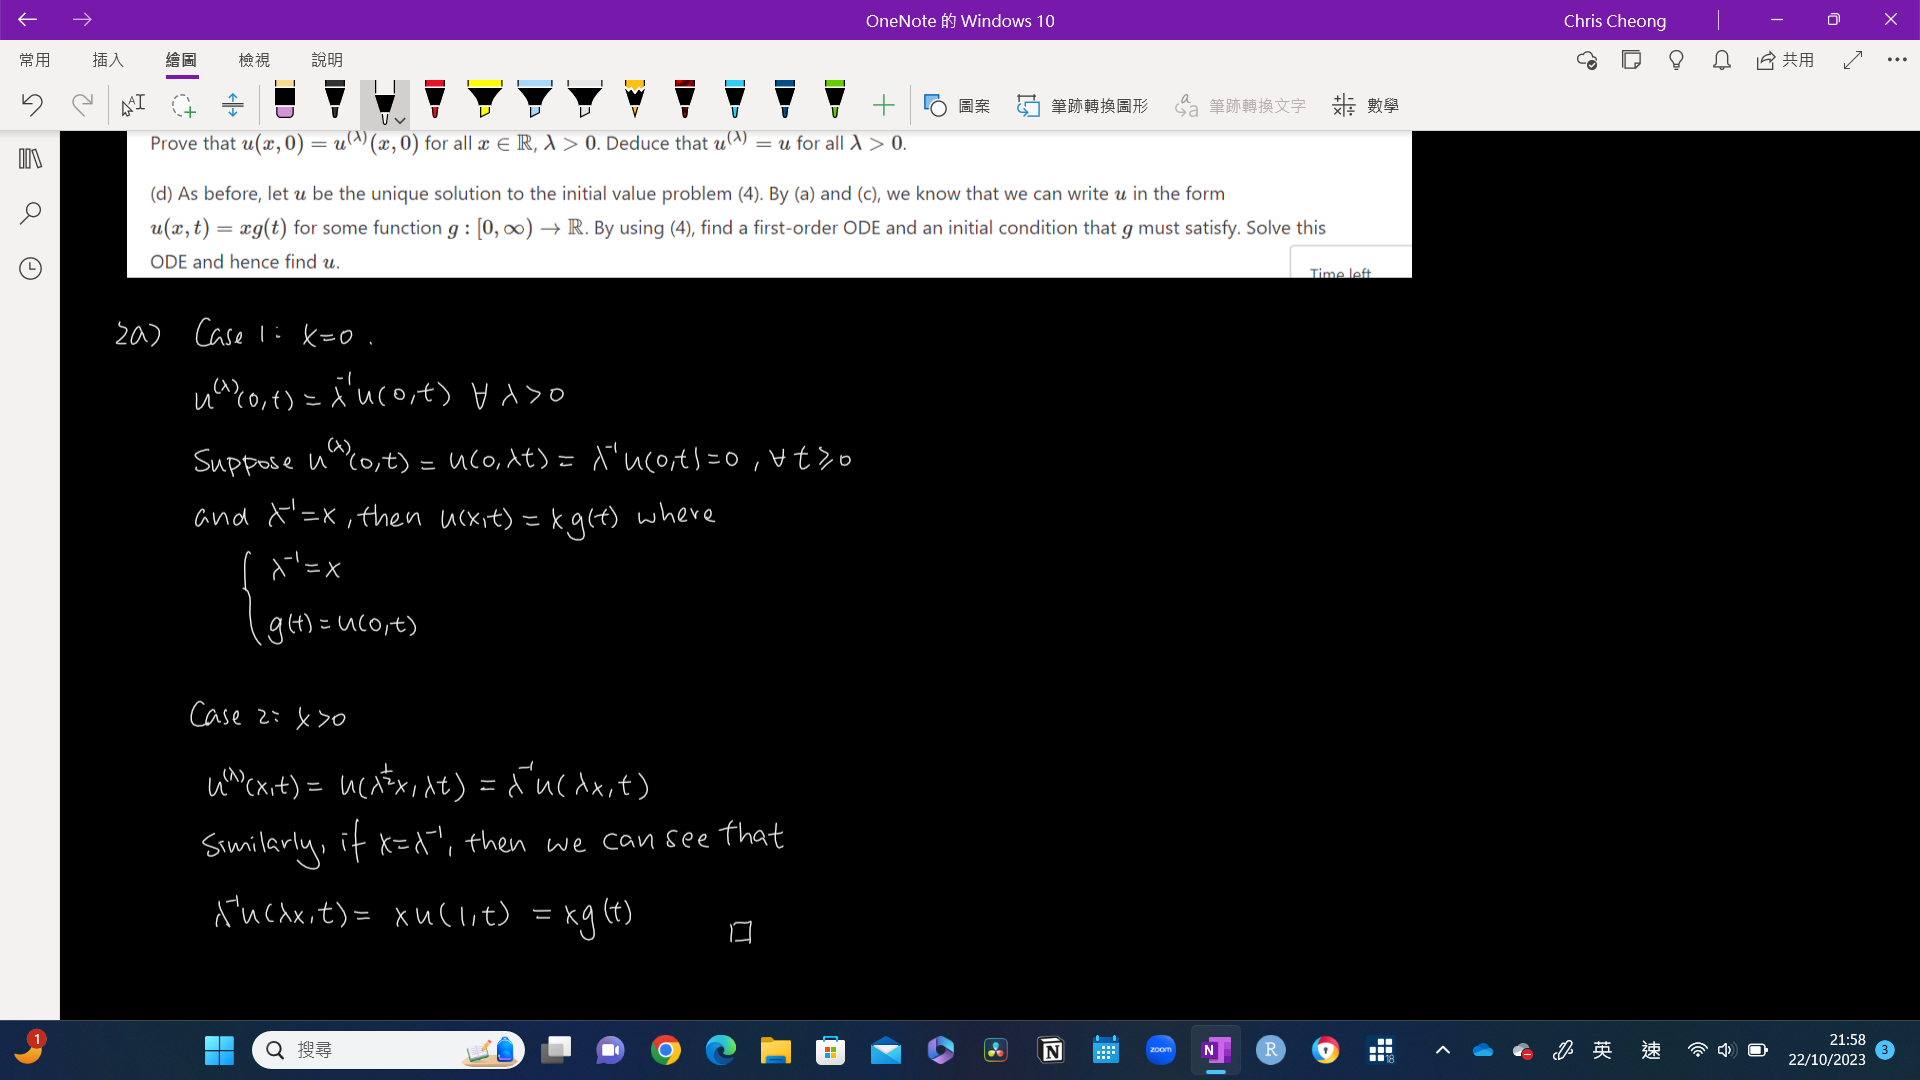 OneNote 的 Windows 10
Chris Cheong
常用 插入 繪圖 檢視 說明
共用
圖案 筆跡轉換圖形 筆跡轉換文字 數學
Prove that u(x, 0) = u^(λ)(x, 0) for all x ∈ ℝ, λ > 0. Deduce that u^(λ) = u for all λ > 0.
(d) As before, let u be the unique solution to the initial value problem (4). By (a) and (c), we know that we can write u in the form
u(x, t) = xg(t) for some function g : [0, ∞) → ℝ. By using (4), find a first-order ODE and an initial condition that g must satisfy. Solve this
ODE and hence find u.
Time left
2a) Case 1: x=0.
u^(λ)(0,t) = λ^-1 u(0,t) ∀ λ>0
Suppose u^(λ)(0,t) = u(0,λt) = λ^-1 u(0,t)=0, ∀ t⩾0
and λ^-1=x, then u(x,t) = xg(t) where
{ λ^-1=x
g(t)=u(0,t)
Case 2: x>0
u^(λ)(x,t) = u(λ^½x,λt) = λ^-1 u(λx,t)
Similarly, if x=λ^-1, then we can see that
λ^-1 u(λx,t) = xu(1,t) = xg(t) □
1
搜尋
zoom
N
R
18
英
速
21:58
22/10/2023
3